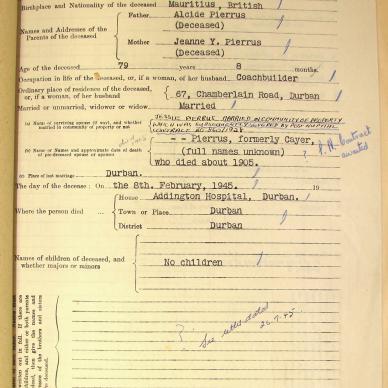 Birthplace and Nationality of the deceased Mauritius, British
Names and Addresses of the Parents of the deceased
Father Alcide Pierrus
(Deceased)
Mother Jeanne Y. Pierrus
(Deceased)
Age of the deceased 79 years 8 months.
Occupation in life of the deceased, or, if a woman, of her husband Coachbuilder
Ordinary place of residence of the deceased, or, if a woman, of her husband 67, Chamberlain Road, Durban
Married or unmarried, widower or widow Married
(a) Name of surviving spouse (if any), and whether married in community of property or not
PIERRUS MARRIED IN COMMUNITY OF PROPERTY
WHICH WAS SUBSEQUENTLY BY POST NUPTIAL
CONTRACT NO 340/1928
(b) Name or Names and approximate date of death of pre-deceased spouse or spouses
-- Pierrus, formerly Cayer,
(full names unknown)
who died about 1905.
? Contract
awaited
(c) Place of last marriage Durban.
The day of the decease : On the 8th. February, 1945. 19
Where the person died
Home Addington Hospital, Durban.
Town or Place Durban
District Durban
Names of children of deceased, and whether majors or minors
No children
? See letter dated
26.7.45.